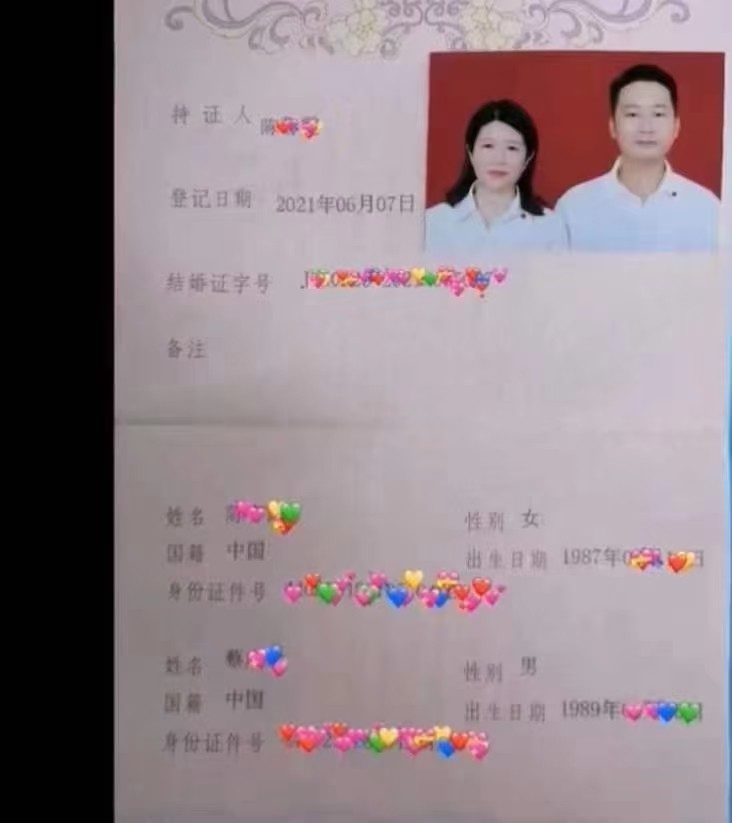 持证人 陈
登记日期 2021年06月07日
结婚证字号 J
备注
姓名 陈
性别 女
国籍 中国
出生日期 1987年
身份证件号
姓名 蔡
性别 男
国籍 中国
出生日期 1989年
身份证件号